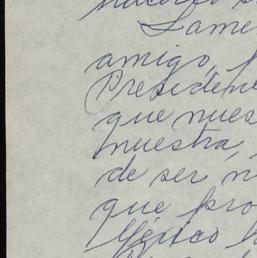 Lame
amigo,
Presidente
que nues
muestra,
de ser n
que pro
México h